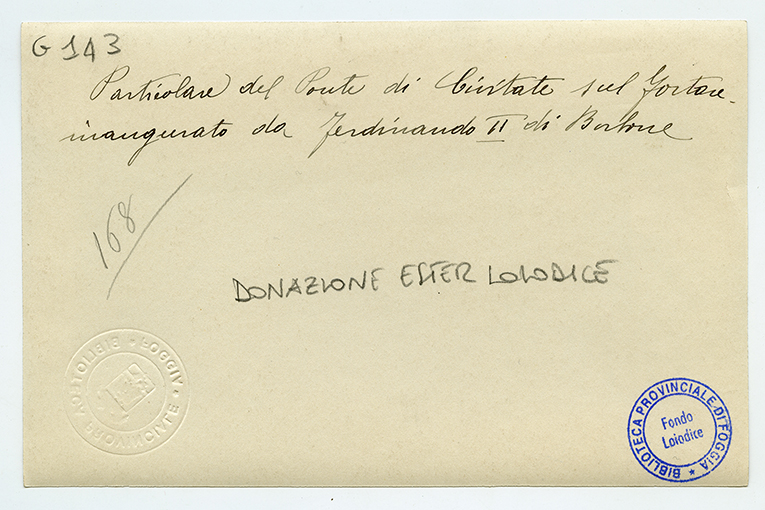 G 143
Particolare del Ponte di Civitate sul Fortore
inaugurato da Ferdinando II di Borbone
168
DONAZIONE ESTER LOIODICE
BIBLIOTECA PROVINCIALE FOGGIA
BIBLIOTECA PROVINCIALE DI FOGGIA
Fondo
Loiodice